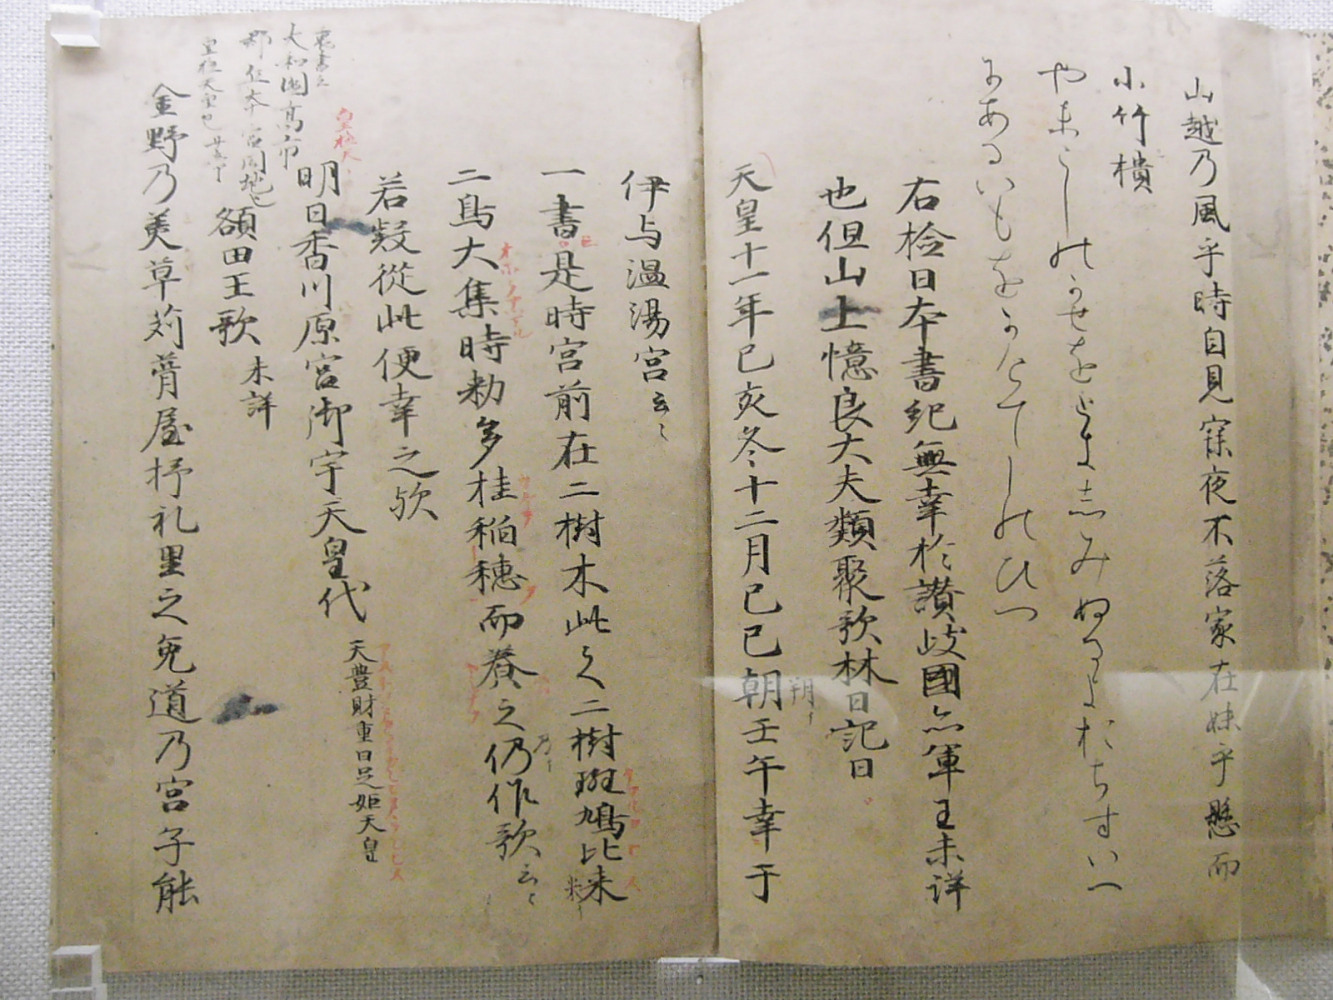 山越乃風乎時自見寐夜不落家在妹乎懸而
小竹櫃
やまこしのかせをときしみぬるよおちすいへ
にあるいもをかけてしのひつ
右検日本書紀無幸於讃岐國亦軍王未詳
也但山上憶良大夫類聚歌林曰記曰
天皇十一年己亥冬十二月己巳朝壬午幸于
朔
伊与温湯宮云〻
一書是時宮前在二樹木此之二樹斑鳩比来
米
二鳥大集時勅多桂稲穂而養之仍作歌云〻
乃
若疑従此便幸之歟
明日香川原宮御宇天皇代 天豊財重日足姫天皇
皇極天
額田王歌 未詳
裏書云
大和國高市
郡
皇極天皇
金野乃美草苅葺屋杼礼里之兔道乃宮子能